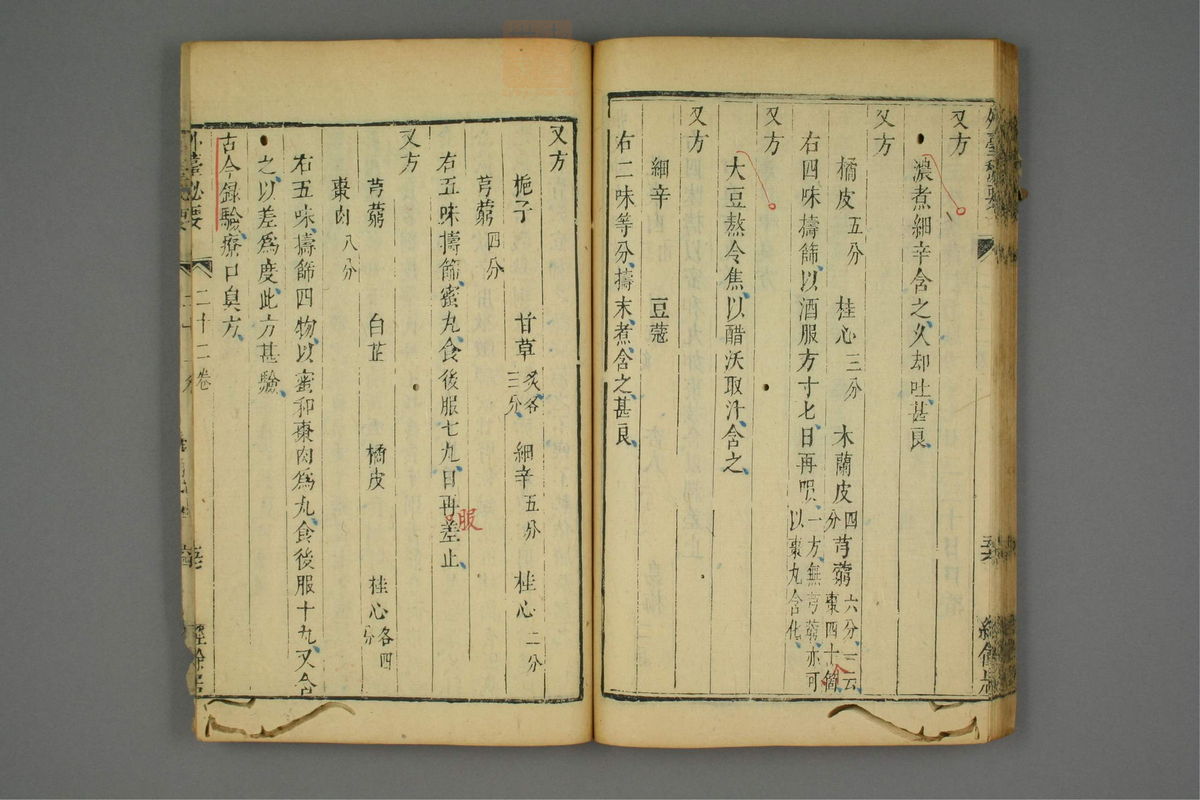 又方
濃煮細辛含之久却吐甚良
又方
橘皮五分 桂心三分 木蘭皮四分 芎藭六分一云棗四十箇
右四味擣篩以酒服方寸匕日再㕮一方無芎藭亦可以棗丸含化
又方
大豆熬令焦以醋沃取汁含之
又方
細辛 豆蔻
右二味等分擣末煮含之甚良
又方
梔子 甘草炙各三分 細辛五分 桂心二分
芎藭四分
右五味擣篩蜜丸食後服七丸日再差止
服
又方
芎藭 白芷 橘皮 桂心各四分
棗肉八分
右五味擣篩四物以蜜和棗肉為丸食後服十丸又含
之以差為度此方甚驗
古今錄驗療口臭方
外臺秘要 二十二卷 經餘居